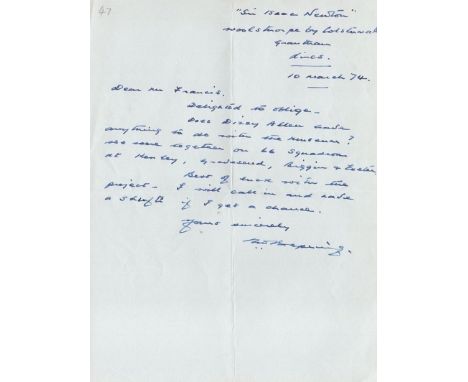 47
"Sir Isaac Newton"
Woolsthorpe by Colsterworth
Grantham
Lincs.
10 March 74.
Dear Mr Francis.
Delighted to oblige.
Does Dizzy Allen have
anything to do with the museum?
We were together on 66 Squadron
at Kenley, Gravesend, Biggin & Exeter
Best of luck with the
project - I will call in and have
a shufti if I get a chance.
Yours sincerely